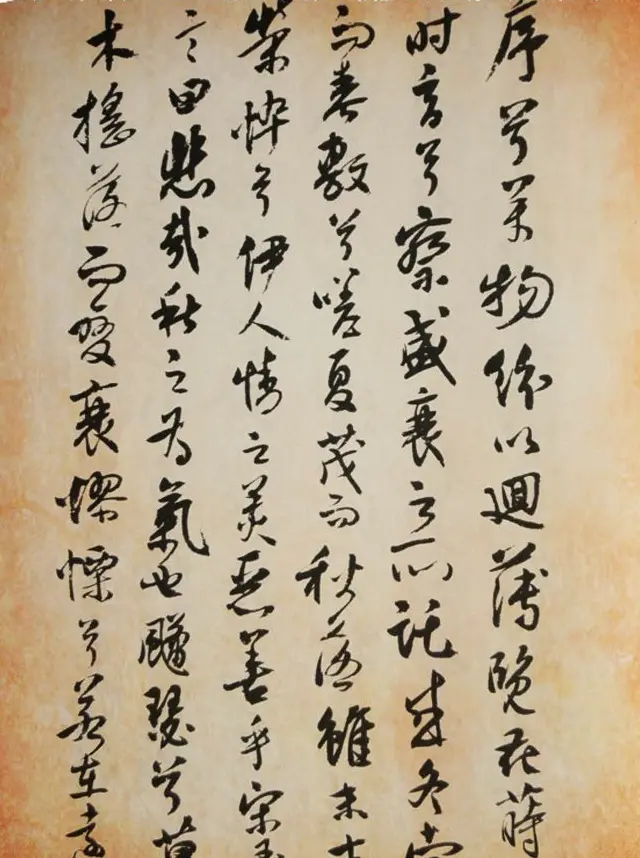 序兮萬物紛以迴薄覽花蒔
時育兮察盛衰之所託感冬索
而春敷兮嗟夏茂而秋落雖末士
榮悴兮伊人情之美惡善乎宋玉
言曰悲哉秋之為氣也瑟兮草
木搖落而變衰憭慄兮若在遠